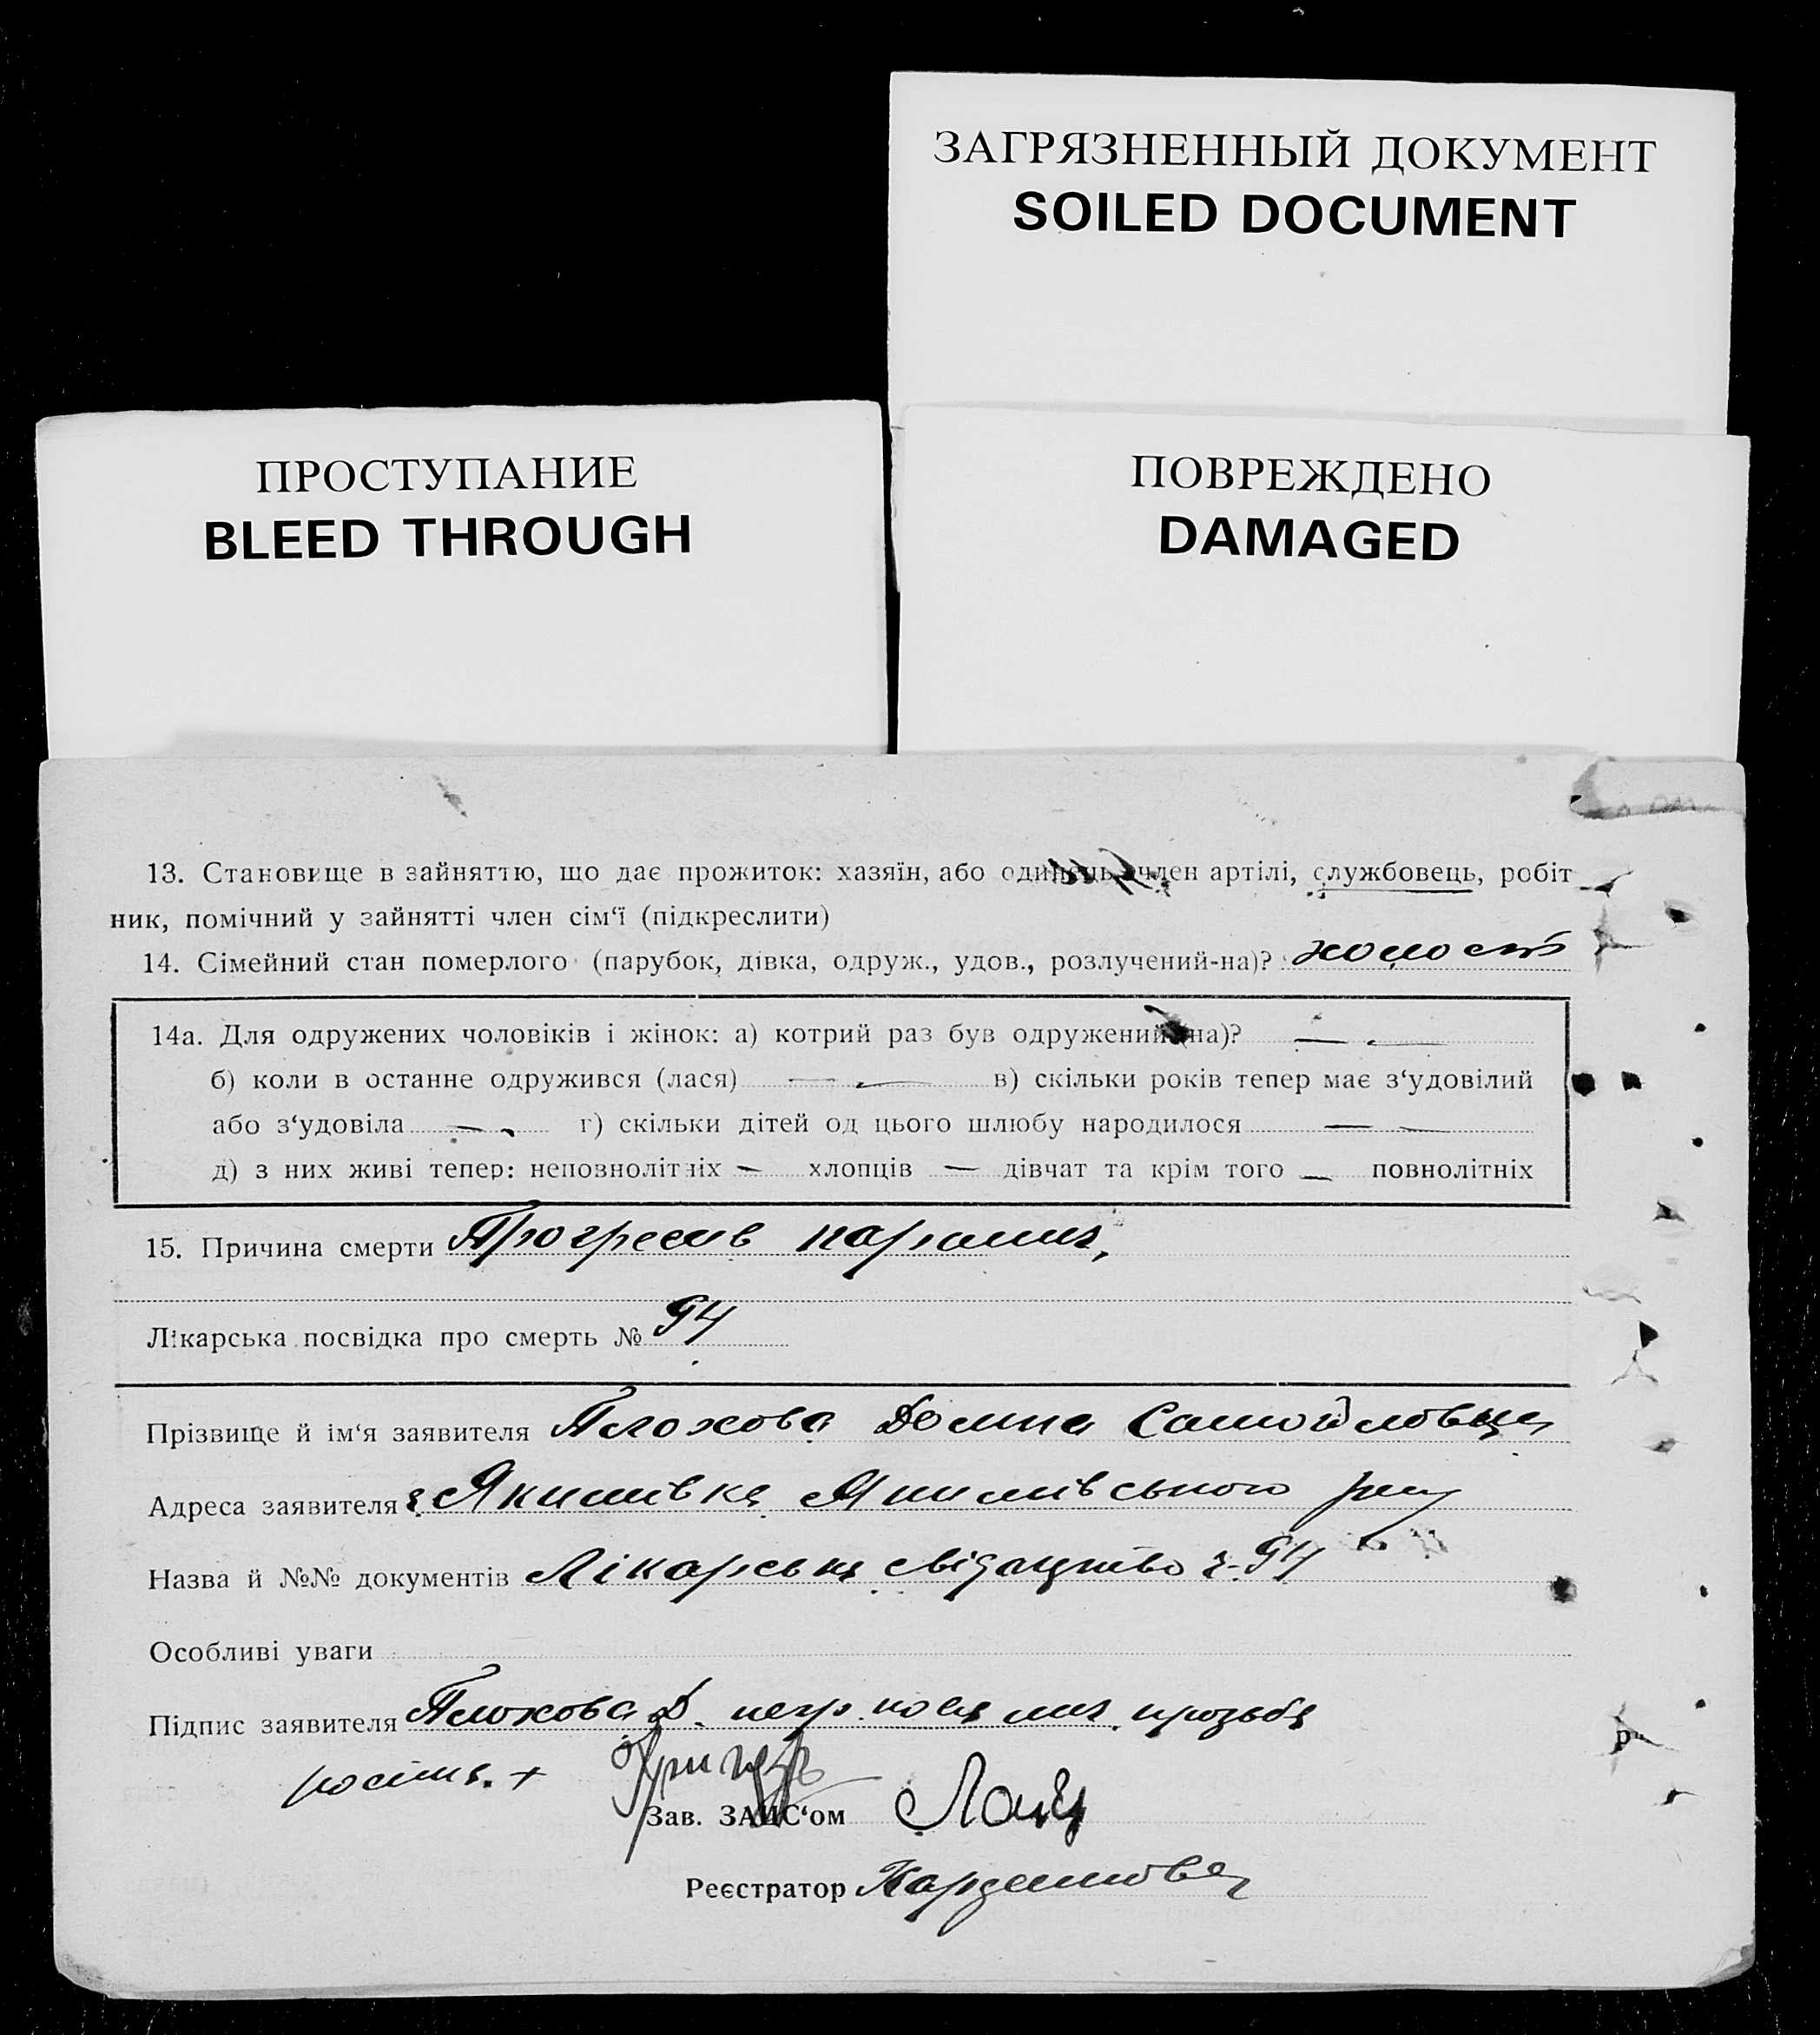 ЗАГРЯЗНЕННЫЙ ДОКУМЕНТ
SOILED DOCUMENT
ПРОСТУПАНИЕ
BLEED THROUGH
ПОВРЕЖДЕНО
DAMAGED
13. Становище в зайняттю, що дає прожиток: хазяїн, або одинець, член артілі, службовець, робіт
ник, помічний у зайнятті член сім‘ї (підкреслити)
14. Сімейний стан померлого (парубок, дівка, одруж., удов., розлучений-на)? холост
14а. Для одружених чоловіків і жінок: а) котрий раз був одружений (на)? — —
б) коли в останне одружився (лася) — — в) скільки років тепер має з‘удовілий
або з‘удовіла — — г) скільки дітей од цього шлюбу народилося — —
д) з них живі тепер: неповнолітніх — хлопців — дівчат та крім того — повнолітніх
15. Причина смерти Прогресив параліч,
Лікарська посвідка про смерть № 94
Прізвище й ім‘я заявителя Плохова Домна Самойловна
Адреса заявителя Якимівка Якимівського
Назва й №№ документів Лікарське свідацтво ч. 94
Особливі уваги
Підпис заявителя Плохова Д. прозьбі
+
Зав. ЗАГС‘ом
Реєстратор